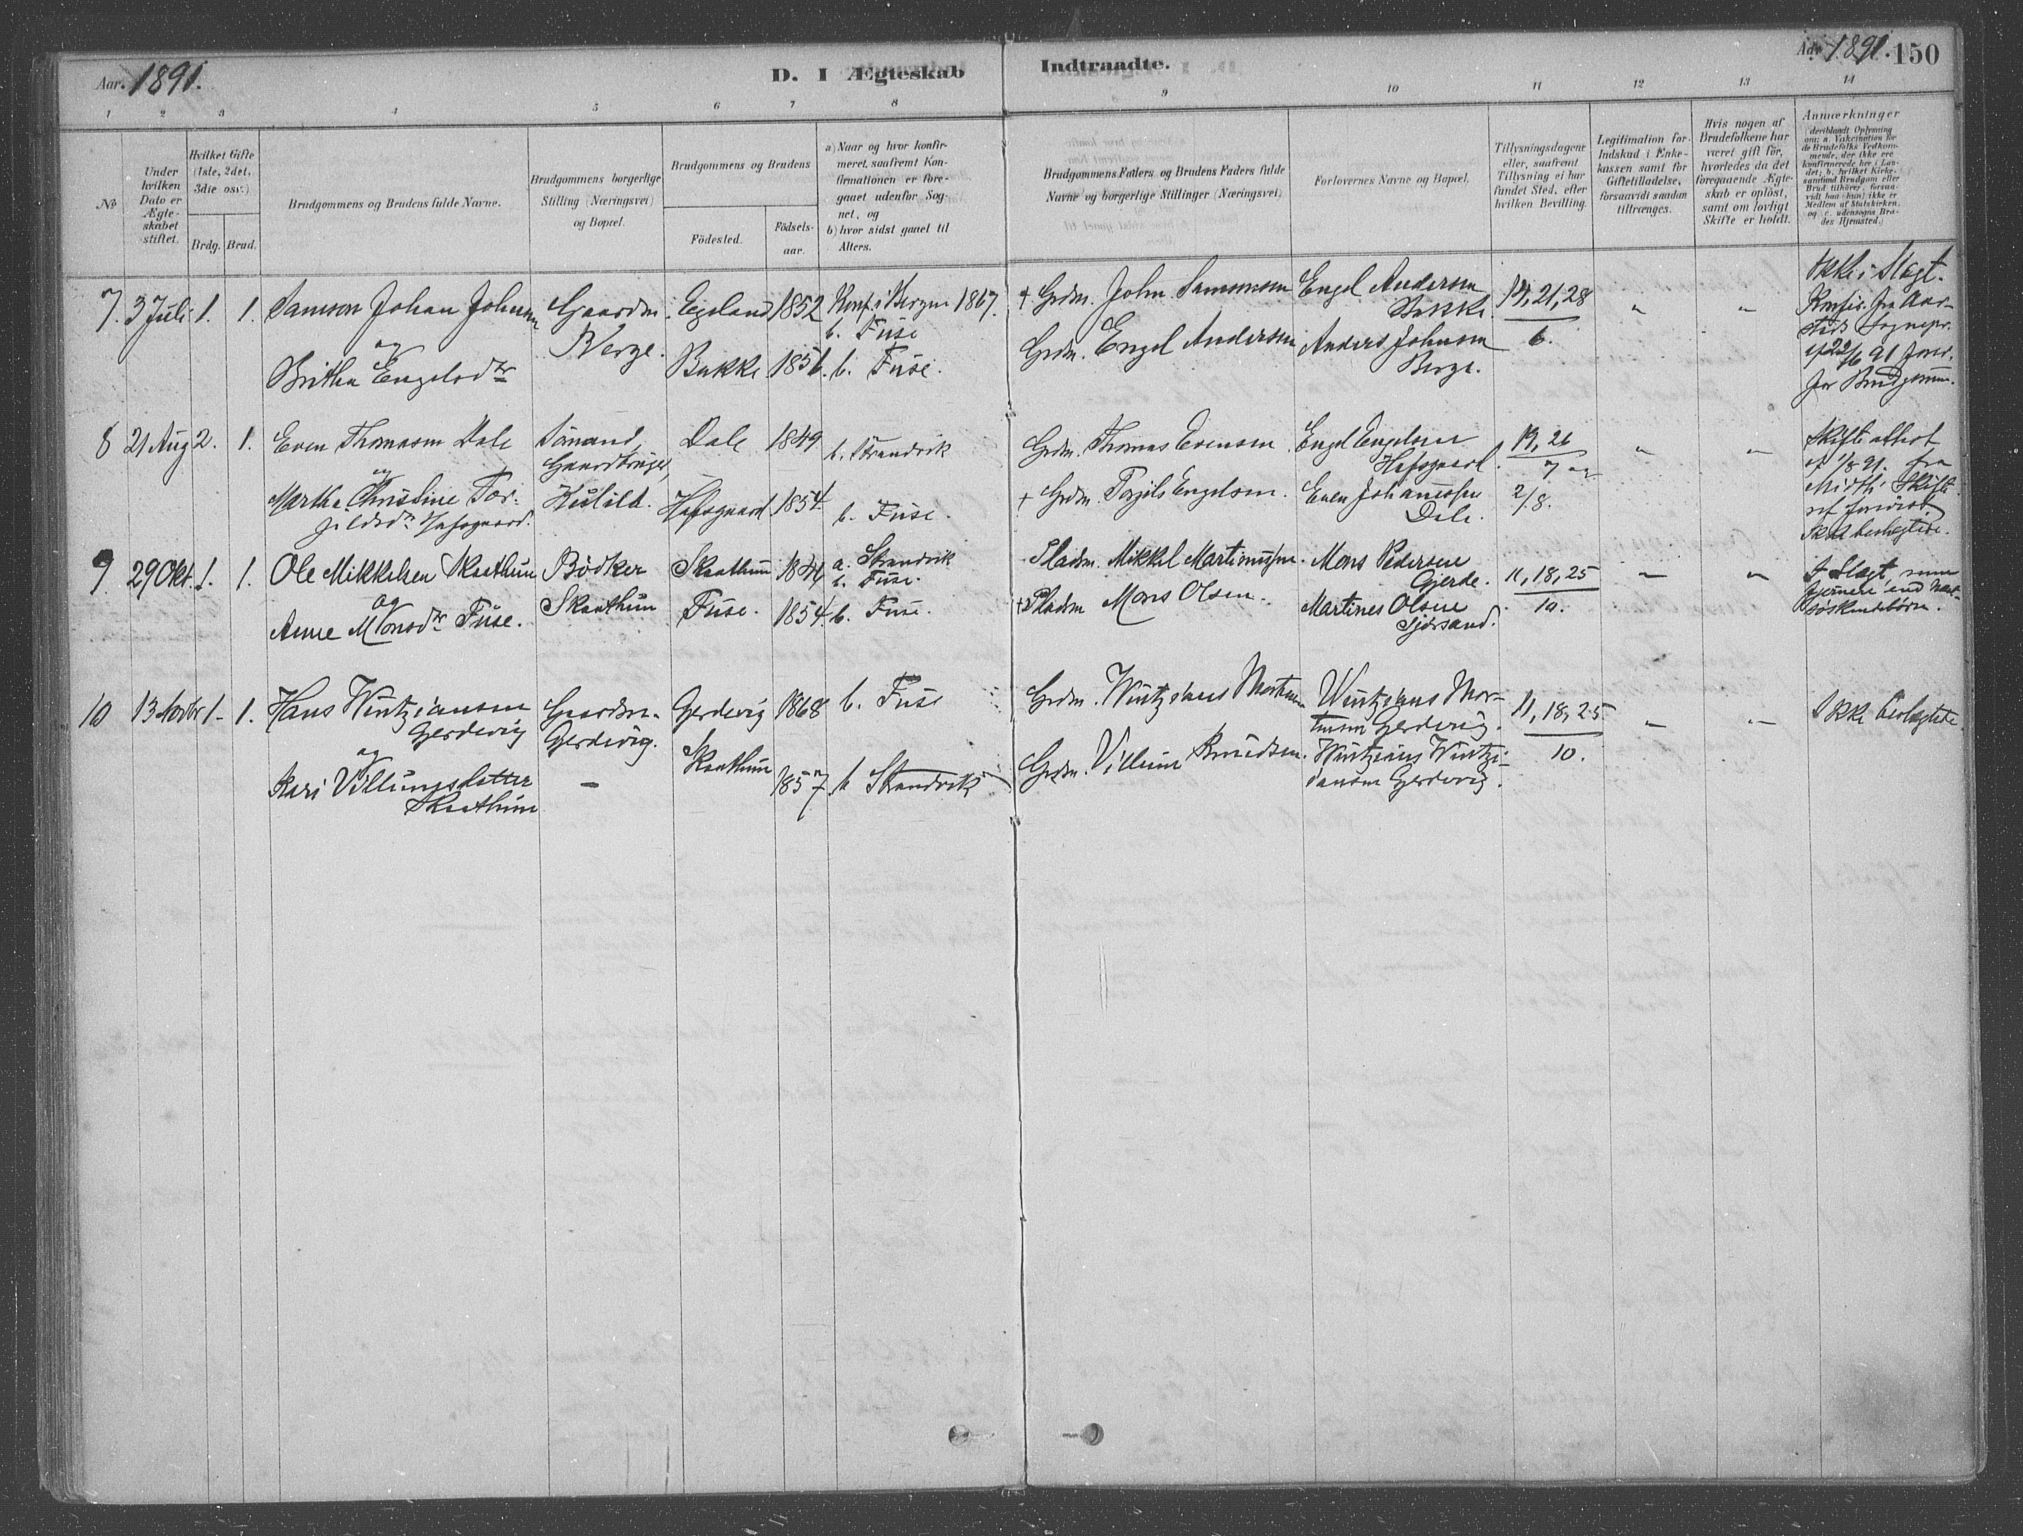 Aar. 1891.
D. I Ægteskab Indtraadte.
Aar. 1891. 150
1 2 3 4 5 6 7 8 9 10 11 12 13 14
No
Under hvilken Dato er Ægteskabet stiftet.
Hvilket Gifte (1ste, 2det, 3die osv.)
Brdg. Brud.
Brudgommens og Brudens fulde Navne.
Brudgommens borgerlige Stilling (Næringsvei) og Bopæl.
Brudgommens og Brudens
Fødested. Fødselsaar.
a) Naar og hvor konfirmeret, saafremt Konfirmationen er foregaaet udenfor Sognet, og
b) hvor sidst gaaet til Alters.
Brudgommens Faders og Brudens Faders fulde Navne og borgerlige Stillinger (Næringsvei)
Forlovernes Navne og Bopæl.
Tillysningsdagene eller, saafremt Tillysning ei har fundet Sted, efter hvilken Bevilling.
Legitimation for Indskud i Enkekassen samt for Giftetilladelse, forsaavidt saadan tiltrænges.
Hvis nogen af Brudefolkene har været gift før, hvorledes da det foregaaende Ægteskab er opløst, samt om lovligt Skifte er holdt.
Anmærkninger
(deriblandt Oplysning om: a. Vakcination for de Brudefolks Vedkommende, der ikke ere konfirmerede her i Landet; b. hvilket Kirkesamfund Brudgom eller Brud tilhører, forsaavidt han (hun) ikke er Medlem af Statskirken, og c. udensogns Brudes Hjemsted.)
7. 3 Juli 1. 1. Samson Johan Johnsen Gaardm. Eigeland 1852 Konf. i Bergen 1867. + Grdm. John Samsonsen Engel Andersen 14, 21, 28 " " Ikke i Slægt.
og Berge. b. Fuse Bakke. 6. Konfir. fra Aar-
Britha Engelsdtr Bakke 1851. b. Fuse. Grdm. Engel Andersen Anders Johnsen stads Sognepr.
Berge. af 22/6 91 forev.
for Brudgommen.
8 21 Aug 2. 1. Even Thomasen Dale Sømand, Dale 1849 b. Strandvik Grdm. Thomas Evensen Engel Engelsen 19, 26 " " Skifte attest
og Gaardbruger, Hafsgaard. 7 og af 1/8 91. fra
Martha Christine Tor- Hafsgaard 1854. b. Fuse. + Grdm. Torgils Engelsen. Even Johannessen 2/8. Skifte
gilsdtr Hafsgaard. Dale. ret forevist.
Ikke beslægtede.
9. 29 Okt. 1. 1. Ole Mikkelsen Skaathun Bødker Skaathun 1844 a. Strandvik Pladsm. Mikkel Martinussen Mons Pedersen 11, 18, 25 " " I Slægt, men
og Skaathun b. Fuse. Gjerde. 10. fjernere end Næst-
Anne Monsdtr Fuse. Fuse. 1854. b. Fuse. + Pladsm Mons Olsen. Martines Olsen søskendebørn.
Sjørsand.
10 13 Novbr 1. 1. Hans Wintziansen Gaardm. Gerdevig 1868 b. Fuse Grdm. Wintzians Mortensen Wintzians Mor- 11, 18, 25 " " Ikke beslægtede.
Gerdevig Gerdevig. tensen Gerdevig. 10.
og Skaathun Grdm. Villum Knudsen. Wintzians Wintzi-
Kari Villumsdatter - 1857. b Strandvik ansen Gerdevig.
Skaathun